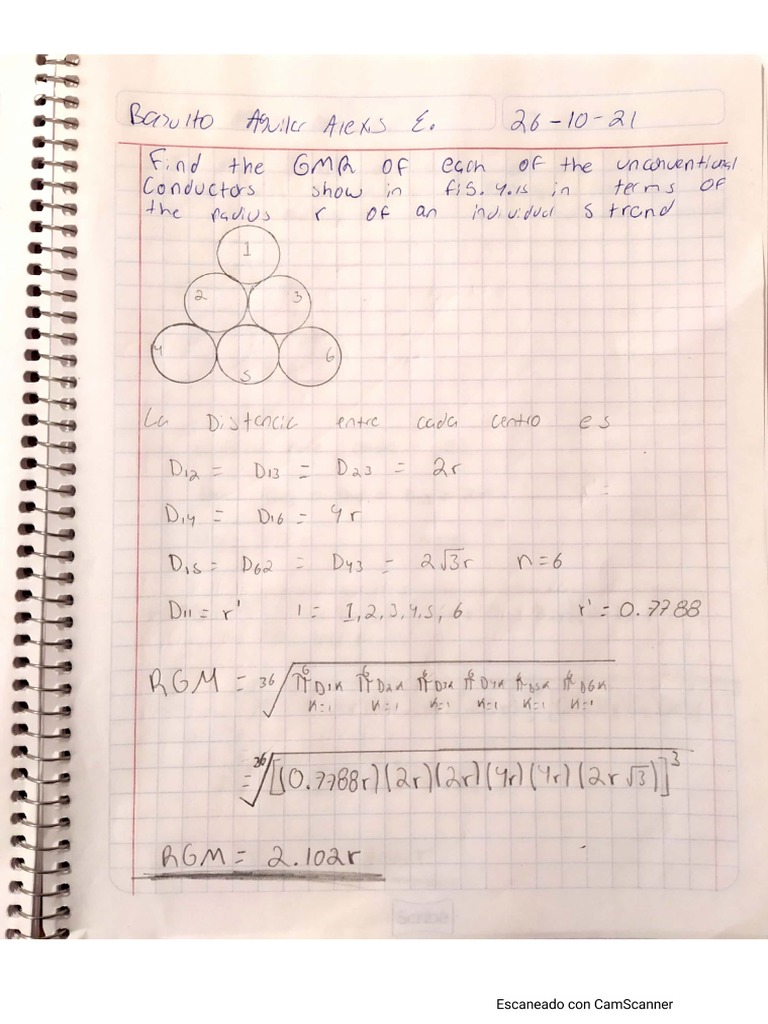 Basulto Aguilar Alexis E. 26-10-21
Find the GMR of each of the unconventional
Conductors show in fig. 4.15 in terms of
the radius r of an individual strand
1
2 3
4 5 6
La Distancia entre cada centro es
D12 = D13 = D23 = 2r
D14 = D16 = 4r
D15 = D62 = D43 = 2√3r n=6
D11 = r' 1 = 1,2,3,4,5,6 r' = 0.7788
RGM = 36√ 6πD1k k=1 6πD2k k=1 6πD3k k=1 6πD4k k=1 6πD5k k=1 6πD6k k=1
= 36√[(0.7788r)(2r)(2r)(4r)(4r)(2r√3)]3
RGM = 2.102r
Scribe
Escaneado con CamScanner